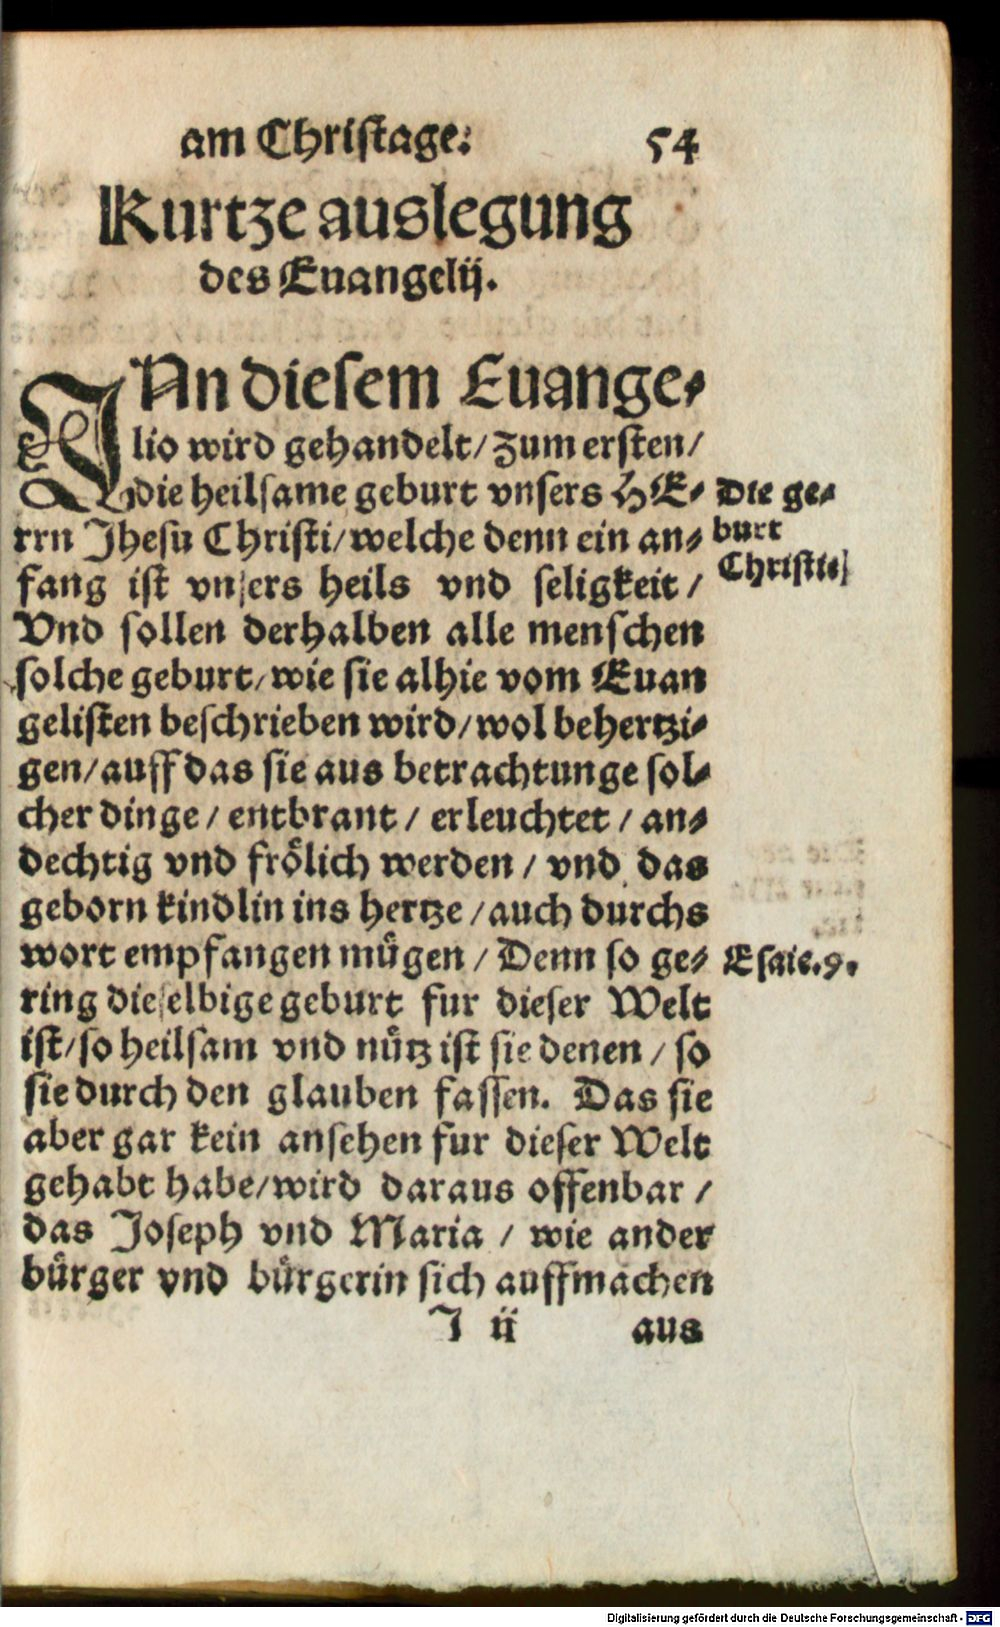 am Christage. 54
Kurtze auslegung
des Euangelij.
IAn diesem Euange-
lio wird gehandelt/ zum ersten/
die heilsame geburt vnsers HE-
rrn Jhesu Christi/ welche denn ein an-
fang ist vnsers heils vnd seligkeit/
Vnd sollen derhalben alle menschen
solche geburt/ wie sie alhie vom Euan
gelisten beschrieben wird/ wol behertzi-
gen/ auff das sie aus betrachtunge sol-
cher dinge/ entbrant/ erleuchtet/ an-
dechtig vnd frölich werden/ vnd das
geborn kindlin ins hertze/ auch durchs
wort empfangen mügen/ Denn so ge-
ring dieselbige geburt fur dieser Welt
ist/ so heilsam vnd nütz ist sie denen/ so
sie durch den glauben fassen. Das sie
aber gar kein ansehen fur dieser Welt
gehabt habe/ wird daraus offenbar/
das Joseph vnd Maria/ wie ander
bürger vnd bürgerin sich auffmachen
J ij aus
Die ge-
burt
Christi
Esaie.9.
Digitalisierung gefördert durch die Deutsche Forschungsgemeinschaft - DFG